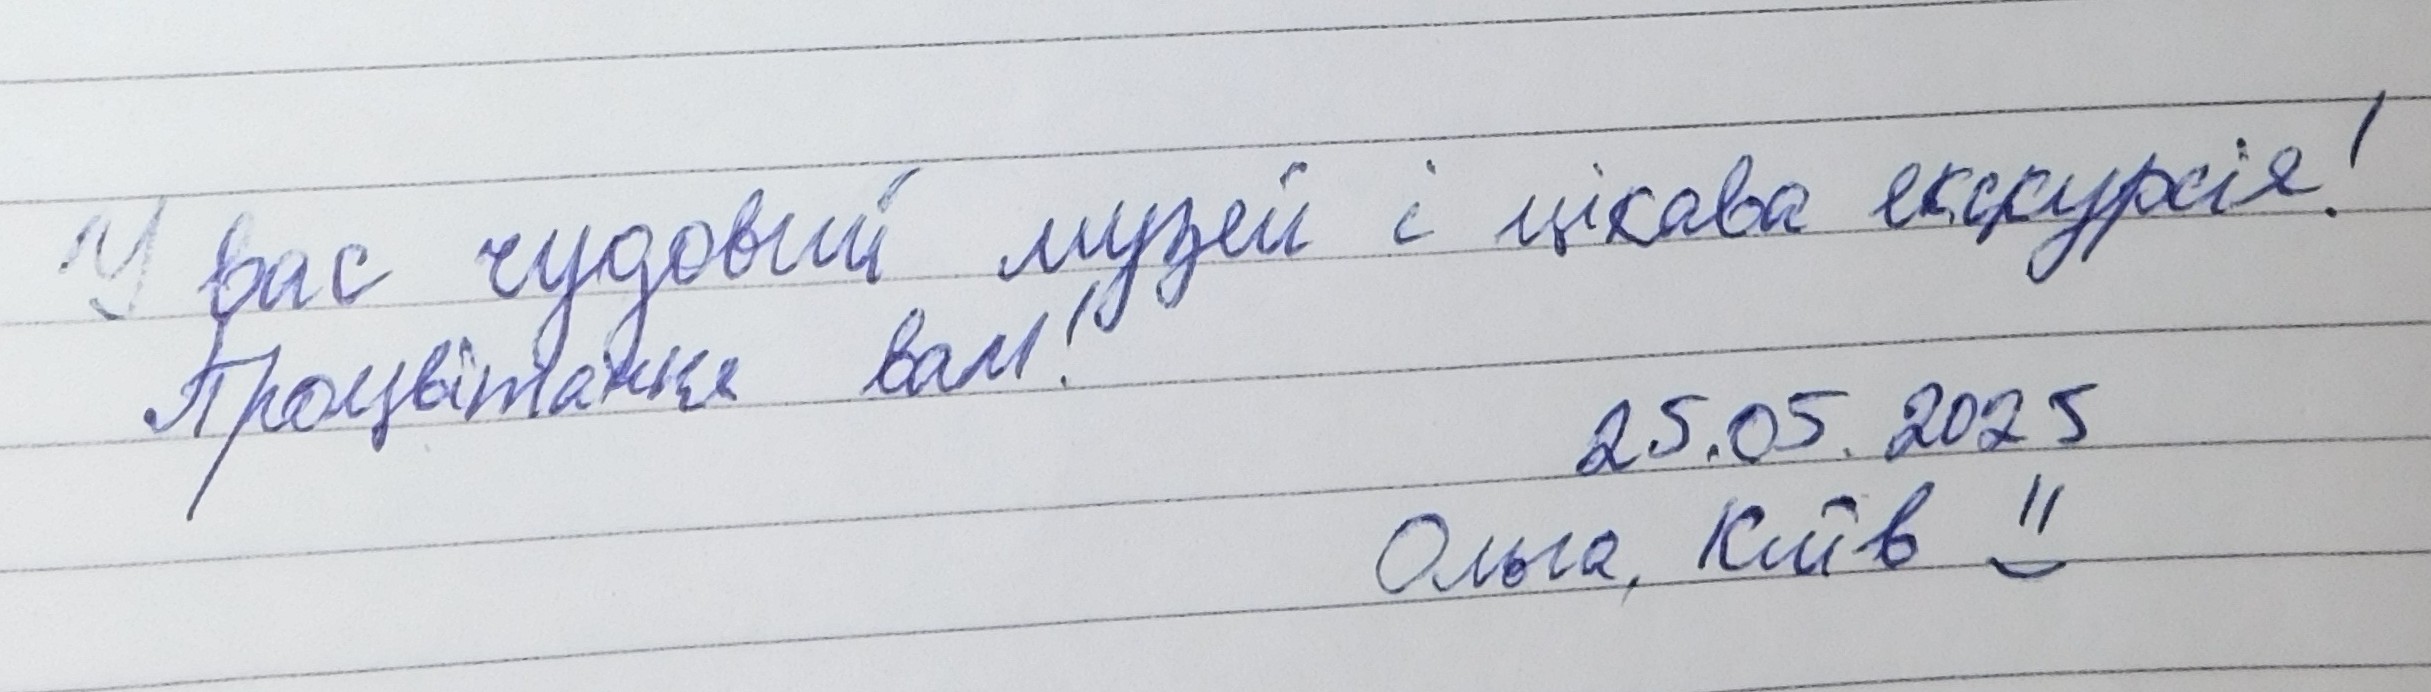 У вас чудовий музей і цікава екскурсія!
Процвітання вам!
25.05.2025
Ольга, Київ